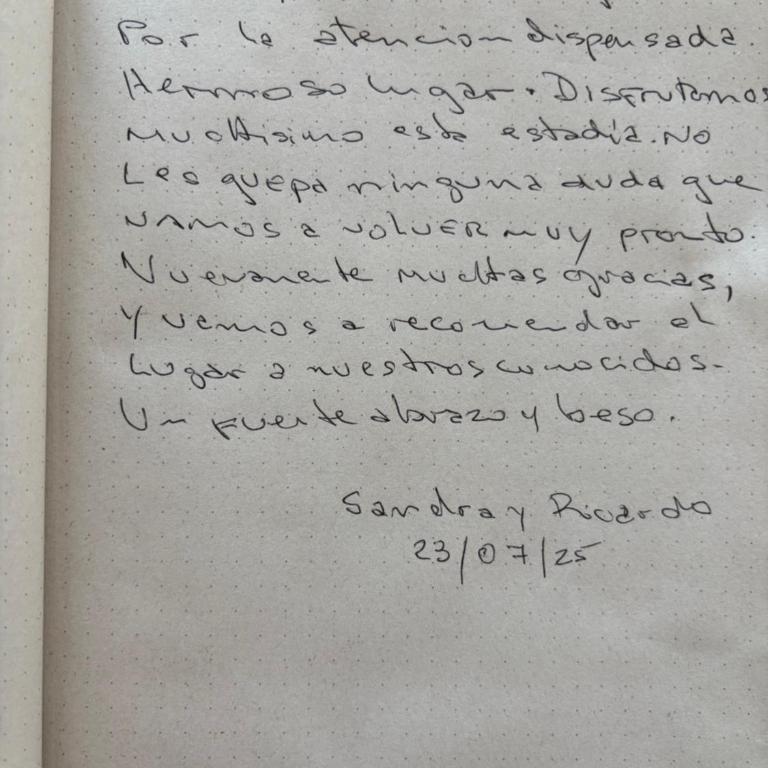 Por la atencion dispensada.
Hermoso lugar. Disfrutamos
muchisimo esta estadía. No
Les quepa ninguna duda que
vamos a volver muy pronto.
Nuevamente muchas gracias,
y vamos a recomendar el
Lugar a nuestros conocidos.
Un fuerte abrazo y beso.
Sandra y Ricardo
23/07/25